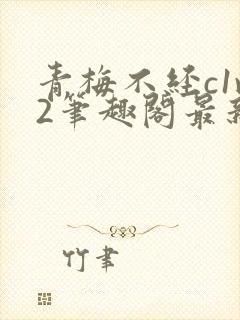 青梅不经c1v
2笔趣阁最新
竹聿